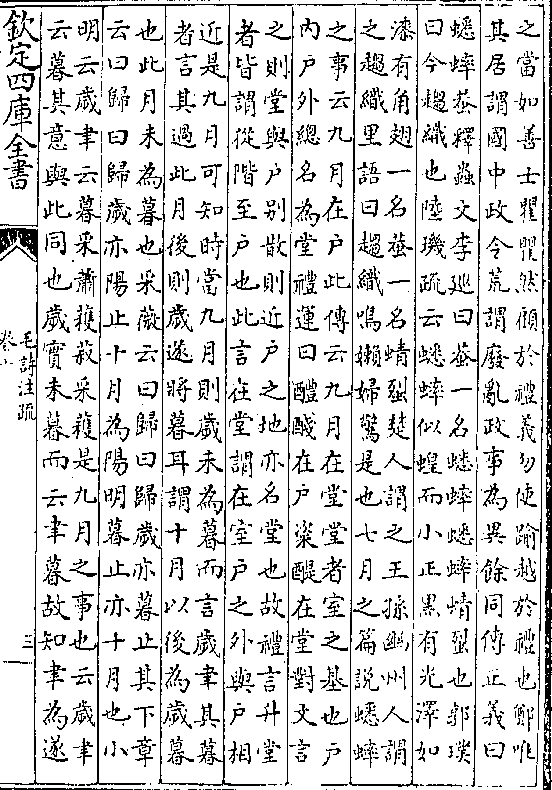 之當如善士瞿瞿然顧於禮義勿使踰越於禮也鄭唯
其居謂國中政令荒謂廢亂政事為異餘同傳正義曰
蟋蟀蛬釋蟲文李廵曰蛬一名蟋蟀蟋蟀蜻蛚也郭璞
曰今趨織也陸璣疏云蟋蟀似蝗而小正黑有光澤如
漆有角翅一名蛬一名蜻蛚楚人謂之王孫幽州人謂
之趨織里語曰趨織鳴嬾婦驚是也七月之篇說蟋蟀
之事云九月在戶此傳云九月在堂堂者室之基也戶
内戶外總名為堂禮運曰醴醆在戶粢醍在堂對文言
之則堂與戶别散則近戶之地亦名堂也故禮言升堂
者皆謂從階至戶也此言在堂謂在室戶之外與戶相
近是九月可知時當九月則歲未為暮而言歲聿其暮
者言其過此月後則歲遂將暮耳謂十月以後為歲暮
也此月未為暮也采薇云曰歸曰歸歲亦暮止其下章
云曰歸曰歸歲亦陽止十月為陽明暮止亦十月也小
明云歲聿云暮采蕭穫菽采穫是九月之事也云歲聿
云暮其意與此同也歲實未暮而云聿暮故知聿為遂
欽定四庫全書
毛詩注疏
三